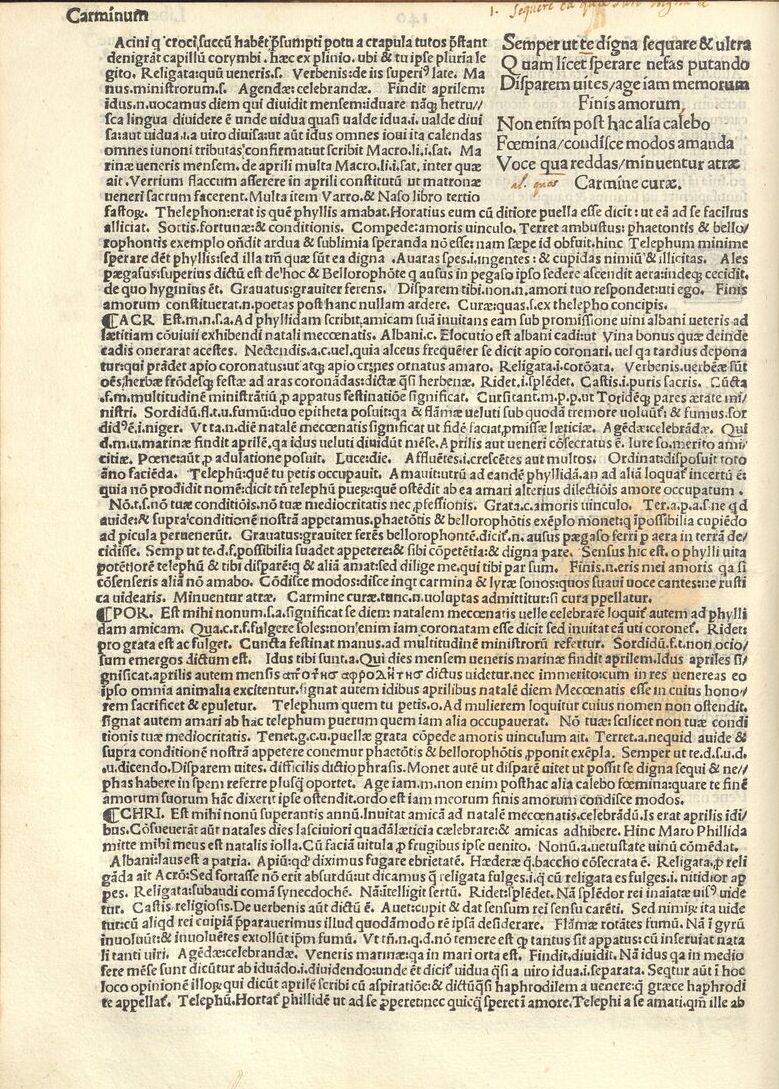 Carminum
1. Sequere ea quae sunt digna te
Acini q̄ croci, succū habēt p̄sumpti potu a crapula tutos p̄stant
denigrāt capillū corymbi. hæc ex plinio. ubi & tu ipse pluria le
gito. Religata: quū ueneris.s. Verbenis: de iis superiꝰ late. Ma
nus.ministrorum.s. Agendæ: celebrandæ. Findit aprilem:
idus.n.uocamus diem qui diuidit mensem: iduare nāq; hetru//
sca lingua diuidere ē unde uidua quasi ualde idua.i. ualde diui
sa: aut uidua.i.a uiro diuisa: ut aūt idus omnes ioui ita calendas
omnes iunoni tributas confirmat: ut scribit Macro.li.i.sat. Ma
rinæ ueneris mensem. de aprili multa Macro.li.i.sat. inter quæ
ait. Verrium flaccum asserere in aprili constitutū ut matronæ
ueneri sacrum facerent. Multa item Varro. & Naso libro tertio
Semper ut te digna sequare & ultra
Quam licet sperare nefas putando
Disparem uites/age iam memorum
Finis amorum,
Non enim post hac alia calebo
Fœmina/condisce modos amanda
Voce qua reddas/minuentur atræ
al. quas
Carmine curæ.
fastoꝝ. Thelephon: erat is quē phyllis amabat. Horatius eum cū ditiore puella esse dicit: ut eā ad se facilius
alliciat. Sortis. fortunæ: & conditionis. Compede: amoris uinculo. Terret ambustus: phaetontis & bello/
rophontis exemplo oñdit ardua & sublimia speranda nō esse: nam sæpe id obfuit. hinc Telephum minime
sperare dēt phyllis: sed illa tm̄ quæ sūt ea digna. Auaras spes.i.ingentes: & cupidas nimiū & illicitas. Ales
pægasus: superius dictū est de hoc & Bellorophōte q̄ ausus in pegaso ipso sedere ascendit aera: indeq; cecidit.
de quo hyginius ēt. Grauatus: grauiter ferens. Disparem tibi. non.n.amori tuo respondet: uti ego. Finis
amorum constituerat.n.poetas post hanc nullam ardere. Curæ: quas.s.ex thelepho concipis.
¶ACR Est.m.n.s.a. Ad phyllidam scribit, amicam suā inuitans eam sub promissione uini albani ueteris ad
lætitiam cōuiuii exhibendi natali mecœnatis. Albani.c. Elocutio est albani cadi: ut Vina bonus quæ deinde
cadis onerarat acestes. Nectendis.a.c.uel, quia alceus frequēter se dicit apio coronari. uel qa tardius depona
tur: qui prādet apio coronatus: ut atq; apio crines ornatus amaro. Religata.i.corōata. Verbenis. uerbēæ sūt
oēs, herbæ frōdesq; festæ ad aras coronādas: dictæ q̄si herbenæ. Ridet.i.splēdet. Castis.i.puris sacris. Cūcta
.f.m.multitudinē ministrātiū, ꝓ apparatus festinatiōe significat. Cursitant.m.p.p.ut Totidēq; pares ætate mi/
nistri. Sordidū.fl.t.u.fumū: duo epitheta posuit: qa & flāmæ ueluti sub quodā tremore uoluūt̄: & fumus. sor
didꝰ ē.i.niger. Vt ta.n.diē natalē mecœnatis significat ut fidē faciat, pmissæ lætitiæ. Agēdæ: celebrādæ. Qui
d.m.u.marinæ findit aprilē. qa idus ueluti diuidūt mēse. Aprilis aut ueneri cōsecratus ē. Iure so. merito ami/
citiæ. Pœne: aut, ꝓ adulatione posuit. Luce: die. Affluētes.i.crescētes aut multos. Ordinat: disposuit toto
āno faciēda. Telephū: quē tu petis occupauit. Amauit: utrū ad eandē phyllidā. an ad aliā loquat̄ incertū ē:
quia nō prodidit nomē: dicit tn̄ telephū pueꝝ: quē ostēdit ab ea amari alterius dilectiōis amore occupatum.
Nō.t.s.nō tuæ conditiōis. nō tuæ mediocritatis nec, pfessionis. Grata.c.amoris uinculo. Ter.a.p.a.s.ne qd
auide: & supra conditionē nostrā appetamus. phaetōtis & bellorophōtis exēplo monet: q̄ ipossibilia cupiēdo
ad picula peruenerūt. Grauatus: grauiter ferēs bellorophontē. dicit̄.n. ausus pægaso ferri p aera in terrā de/
cidisse. Semp ut te.d.s.possibilia suadet appetere: & sibi cōpetētia: & digna pare. Sensus hic est. o phylli uita
potētiorē telephū & tibi disparē: q̄ & aliā amat: sed dilige me. qui tibi par sum. Finis.n.eris mei amoris qa si
cōsenseris aliā nō amabo. Cōdisce modos: disce inqt carmina & lyræ sonos: quos suaui uoce cantes: ne rusti
ca uidearis. Minuentur atræ. Carmine curæ. tunc.n.uoluptas admittitur: si cura ppellatur.
¶POR. Est mihi nonum.s.a.significat se diem natalem mecœnatis uelle celebrare loquit̄ autem ad phylli
dam amicam. Qua.c.r.f.fulgere soles: non enim iam coronatam esse dicit sed inuitat eā uti coronet̄. Ridet:
pro grata est ac fulget. Cuncta festinat manus. ad multitudinē ministrorū refertur. Sordidū.f.t.non ocio/
sum emergos dictum est. Idus tibi sunt.a. Qui dies mensem ueneris marinæ findit aprilem. Idus apriles si/
gnificat. aprilis autem mensis ἀπὸ τῆς αφροδίτης dictus uidetur. nec immerito: cum in res uenereas eo
ipso omnia animalia excitentur. signat autem idibus aprilibus natalē diem Mecœnatis esse in cuius hono/
rem sacrificet & epuletur. Telephum quem tu petis.o. Ad mulierem loquitur cuius nomen non ostendit.
signat autem amari ab hac telephum puerum quem iam alia occupauerat. Nō tuæ: scilicet non tuæ condi
tionis tuæ mediocritatis. Tenet.g.c.u.puellæ grata cōpede amoris uinculum ait. Terret.a.nequid auide &
supra conditionē nostrā appetere conemur phaetōtis & bellorophōtis, pponit exēpla. Semper ut te.d.s.u.d.
.u.dicendo. Disparem uites. difficilis dictio phrasis. Monet autē ut disparē uitet ut possit se digna sequi & ne//
phas habere in spem referre plusq̄ oportet. Age iam.m.non enim posthac alia calebo fœmina: quare te finē
amorum suorum hāc dixerit ipse ostendit. ordo est iam meorum finis amorum condisce modos.
¶CHRI. Est mihi nonū superantis annū. Inuitat amicā ad natalē mecœnatis. celebrādū. Is erat aprilis idi/
bus. Cōsueuerāt aūt natales dies lasciuiori quadā læticia cælebrare: & amicas adhibere. Hinc Maro Phillida
mitte mihi meus est natalis iolla. Cū faciā uitula ꝓ frugibus ipse uenito. Nonū. a uetustate uinū cōmēdat.
Albani: laus est a patria. Apiū: qd diximus fugare ebrietatē. Hæderæ q̄ baccho cōsecrata ē. Religata. ꝓ reli
gāda ait Acrō: Sed fortasse nō erit absurdū: ut dicamus q̄ religata fulges.i.q̄ cū religata es fulges.i. nitidior ap
pes. Religata: subaudi comā synecdochē. Nā: itelligit sertū. Ridet: splēdet. Nā splēdor rei inaiatæ uisꝰ uide
tur. Castis. religiosis. De uerbenis aūt dictū ē. Auet: cupit & dat sensum rei sensu carēti. Sed nimiꝝ ita uide
tur: cū aliqd rei cuipiā pparauerimus illud quodāmodo rē ipsā desiderare. Flāmæ rotātes fumū. Nā ī gyrū
inuoluūt: & inuoluētes extollūt ipm̄ fumū. Vt tn̄.n.q.d.nō temere est ꝙ tantus sit apparatus: cū inseruiat nata
li tanti uiri. Agēdæ: celebrandæ. Veneris marinæ: qa in mari orta est. Findit. diuidit. Nā idus qa in medio
fere mēse sunt dicūtur ab iduādo.i.diuidendo: unde ēt dicit̄ uidua q̄si a uiro idua.i.separata. Seqtur aūt ī hoc
loco opinionē illoꝝ qui dicūt aprilē scribi cū aspiratiōe: & dictūq̄si haphrodilem a uenere: q̄ græce haphrodi
te appellat̄. Telephū. Hortat̄ phillidē ut ad se, pperet: nec quicq̄ speret ī amore. Telephi a se amati. qm̄ ille ab